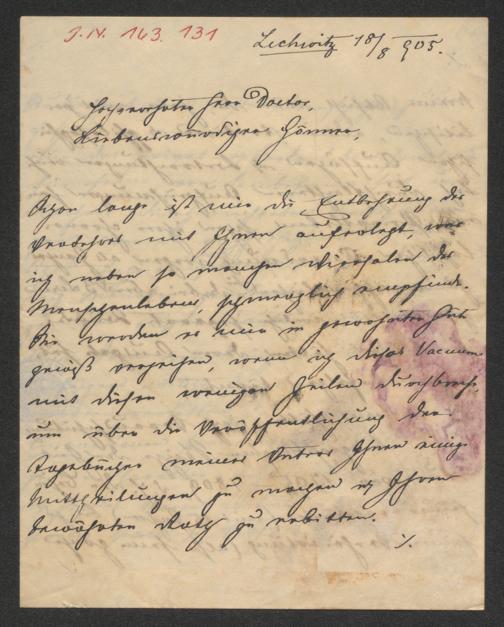 J.N. 163.131
Lechwitz 18/8 905.
Hochverehrter Herr Doctor,
Liebenswürdiger Gönner,
Schon lange ist mir die Entbehrung des
Verkehres mit Ihnen auferlegt, was
ich neben so manchen Wirrsalen des
Menschenlebens, schmerzlich empfinde.
Sie werden es mir in gewohnter Huld
gewiß verzeihen, wenn ich dieses Vacuum
mit diesen wenigen Zeilen durchbreche,
um über die Veröffentlichung der
Tagebücher meines Vaters Ihnen einige
Mittheilungen zu machen u Ihren
bewährten Rath zu erbitten.
./.